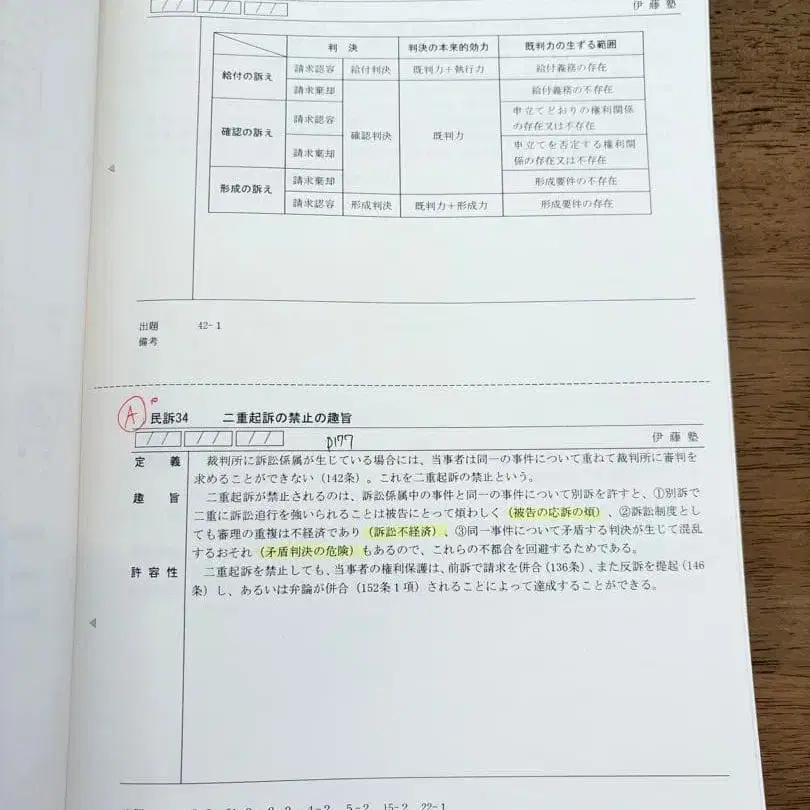 伊藤塾
判決 判決の本来的効力 既判力の生ずる範囲
給付の訴え 請求認容 給付判決 既判力+執行力 給付義務の存在
請求棄却 確認判決 既判力 給付義務の不存在
確認の訴え 請求認容 申立てどおりの権利関係
の存在又は不存在
請求棄却 申立てを否定する権利関
係の存在又は不存在
形成の訴え 請求棄却 形成要件の不存在
請求認容 形成判決 既判力+形成力 形成要件の存在
出題 42-1
備考
A 民訴34 二重起訴の禁止の趣旨
// // // p177 伊藤塾
定義 裁判所に訴訟係属が生じている場合には、当事者は同一の事件について重ねて裁判所に審判を
求めることができない(142条)。これを二重起訴の禁止という。
趣旨 二重起訴が禁止されるのは、訴訟係属中の事件と同一の事件について別訴を許すと、①別訴で
二重に訴訟追行を強いられることは被告にとって煩わしく(被告の応訴の煩)、②訴訟制度とし
ても審理の重複は不経済であり(訴訟不経済)、③同一事件について矛盾する判決が生じて混乱
するおそれ(矛盾判決の危険)もあるので、これらの不都合を回避するためである。
許容性 二重起訴を禁止しても、当事者の権利保護は、前訴で請求を併合(136条)、また反訴を提起(146
条)し、あるいは弁論が併合(152条1項)されることによって達成することができる。
4-2 5-2 15-2 22-1